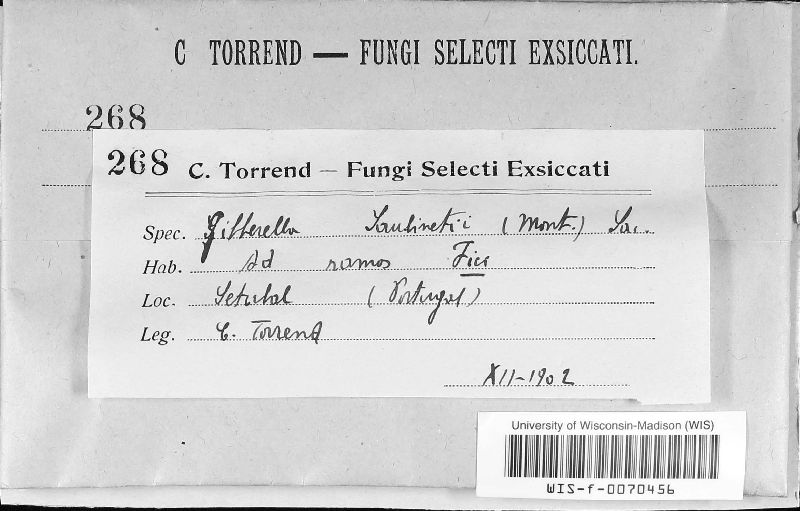 C TORREND — FUNGI SELECTI EXSICCATI.
268
268 C. Torrend — Fungi Selecti Exsiccati
Spec. Gibberella Saubinetii (Mont.) Sac.
Hab. Ad ramos Fici
Loc. Setubal (Portugal)
Leg. C. Torrend
XII-1902
University of Wisconsin-Madison (WIS)
WIS-f-0070456